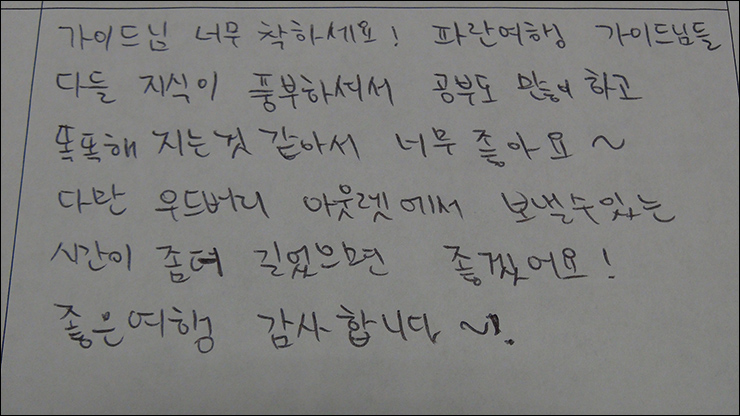 가이드님 너무 착하세요! 파란여행 가이드님들
다들 지식이 풍부하셔서 공부도 많이 하고
똑똑해 지는것 같아서 너무 좋아요~
다만 우드버리 아웃렛에서 보낼수있는
시간이 좀더 길었으면 좋겠어요!
좋은여행 감사합니다~!